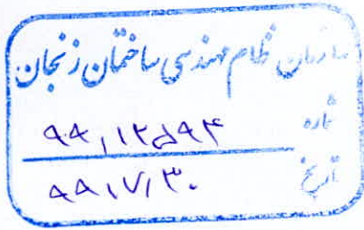 سازمان نظام مهندسی ساختمان زنجان
شماره ۹۹,۱۲۵۹۴
تاریخ ۹۹,۷,۳۰